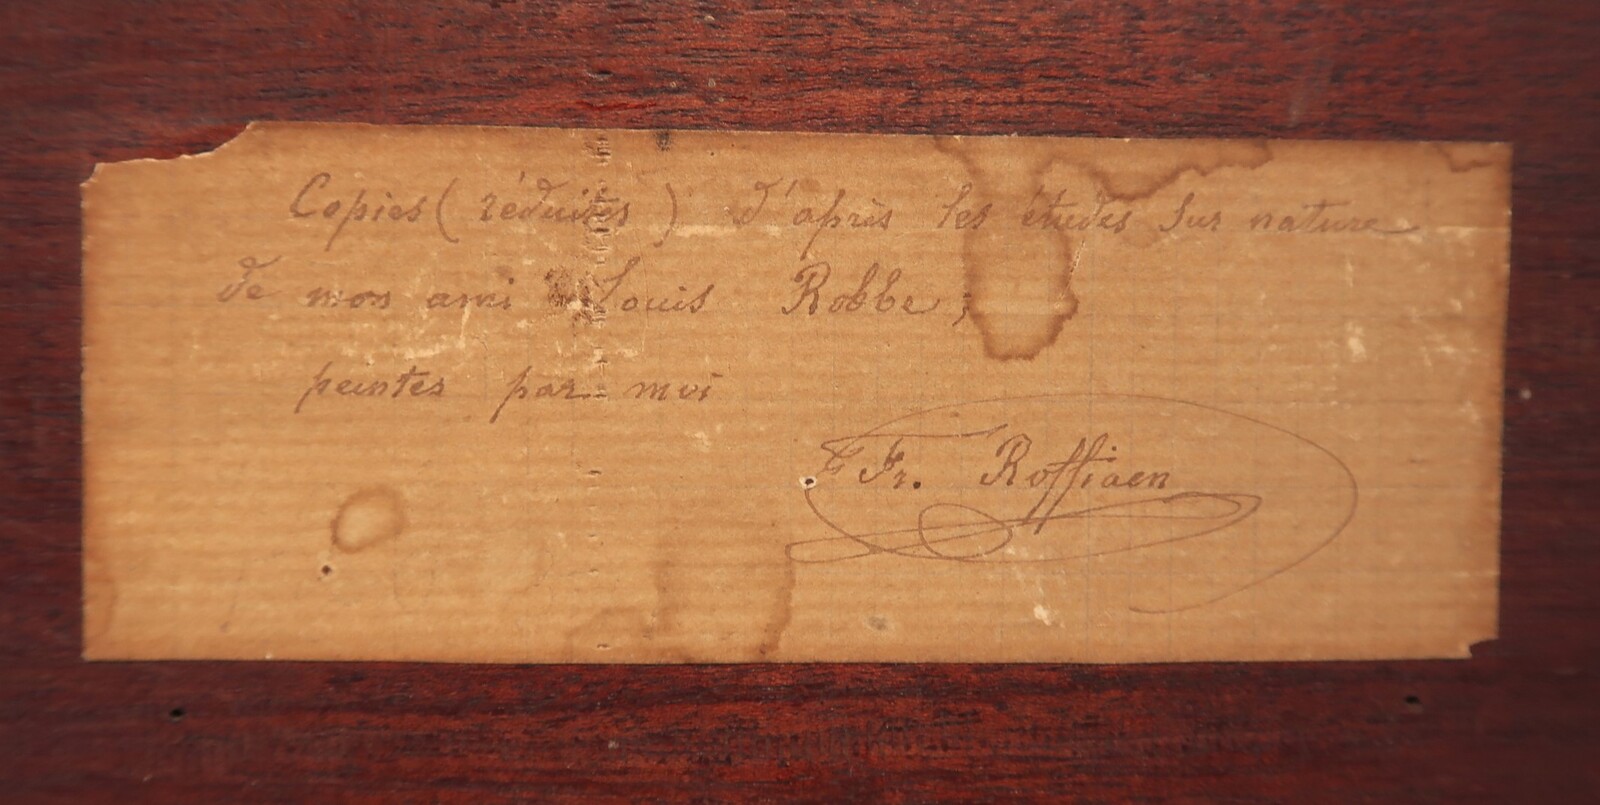 Copies (réduites) d'après les études sur nature
de mon ami Louis Robbe,
peintes par moi
Fr. Roffiaen